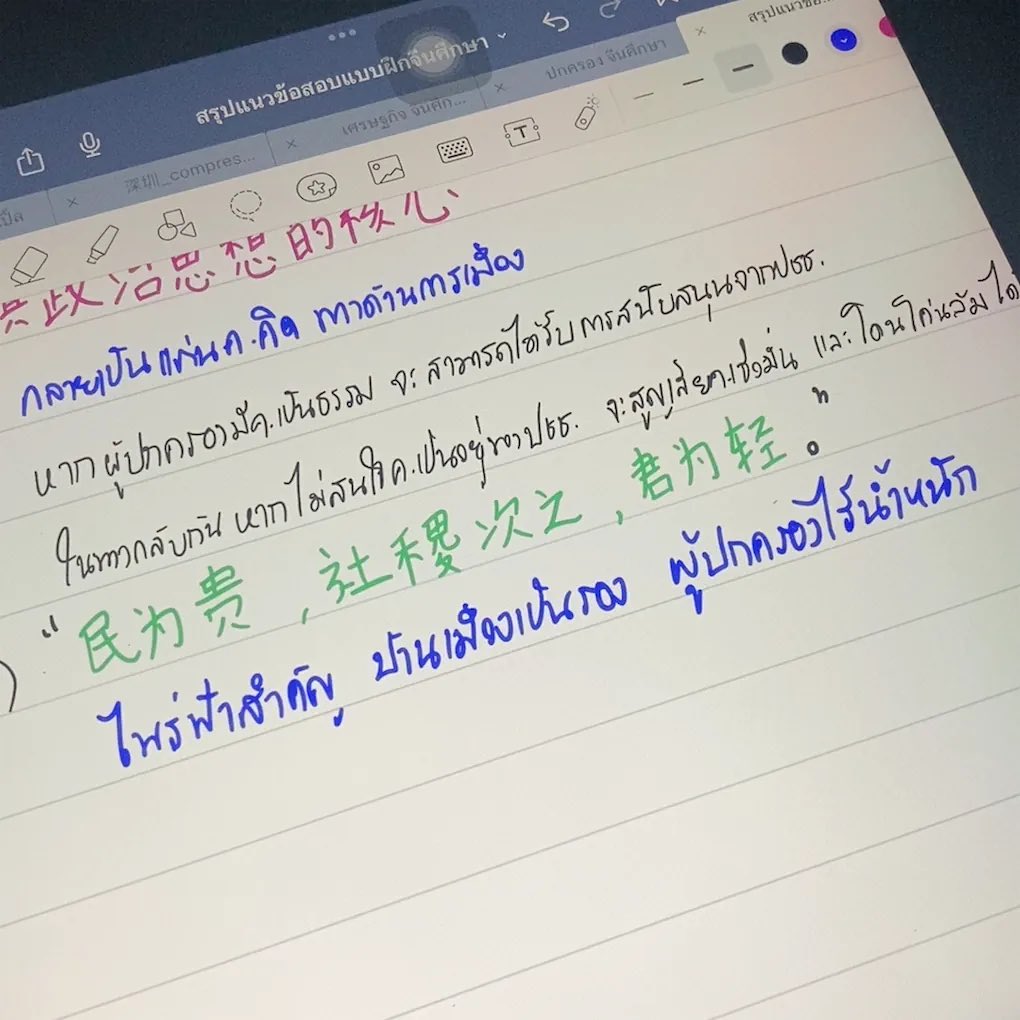 สรุปแนวข้อสอบแบบฝึกจีนศึกษา
สรุปแนวข้อ...
深圳_compres...
เศรษฐกิจ จีนศึก...
ปกครอง จีนศึกษา
T
政治思想的核心
กลายเป็นแก่นค.คิด ทางด้านการเมือง
หากผู้ปกครองมีค.เป็นธรรม จะสามารถได้รับการสนับสนุนจากปชช.
ในทางกลับกัน หากไม่สนใจค.เป็นอยู่ของปชช. จะสูญเสียค.เชื่อมั่น และโดนโค่นล้มได้
"民为贵,社稷次之,君为轻。"
ไพร่ฟ้าสำคัญ บ้านเมืองเป็นรอง ผู้ปกครองไร้น้ำหนัก